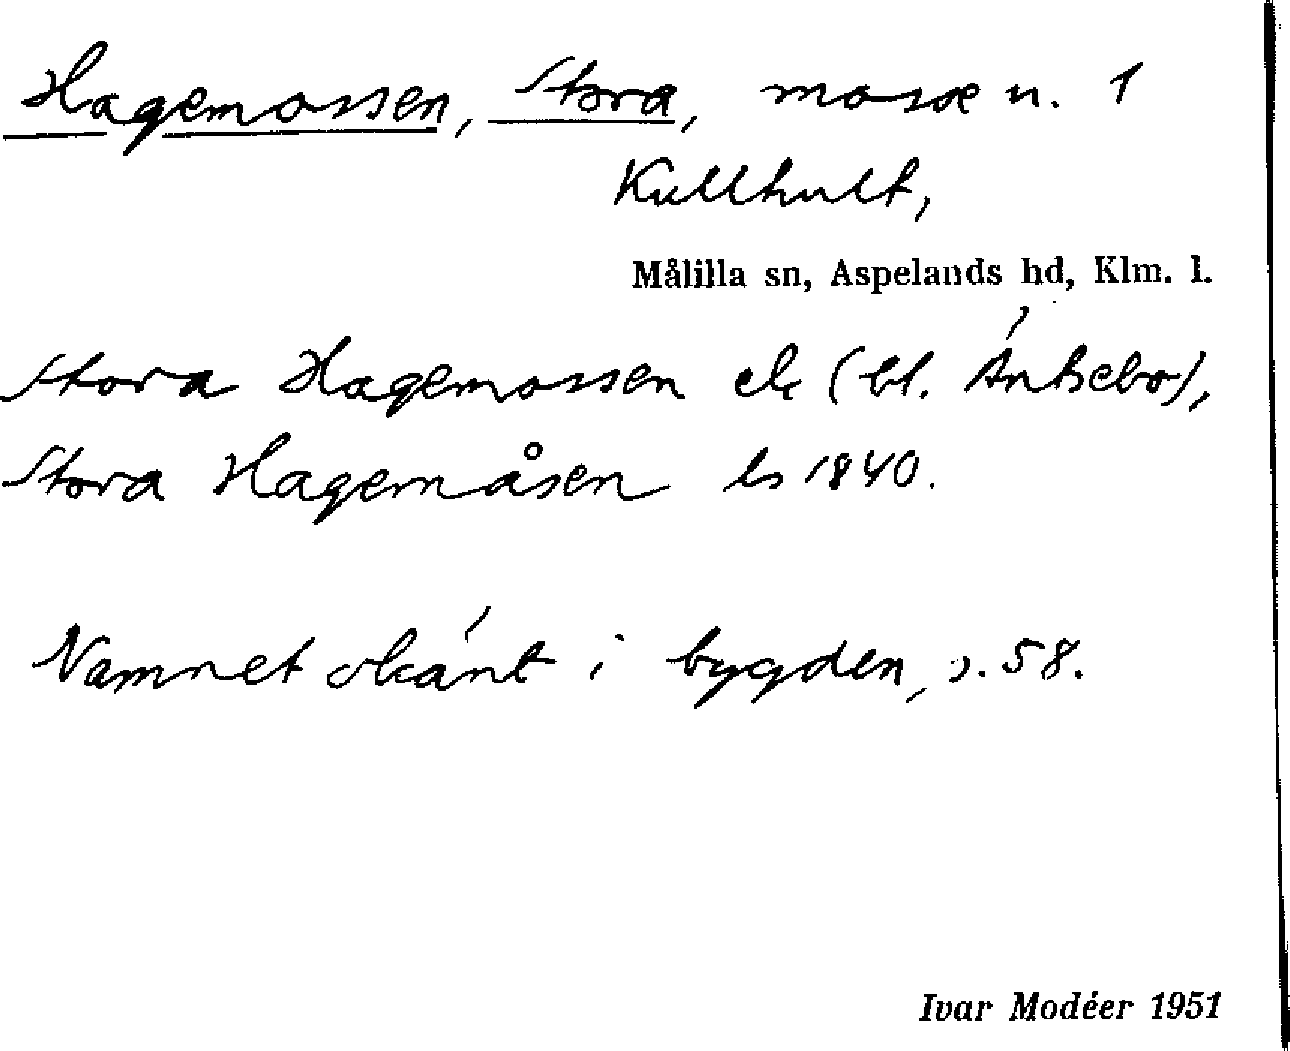 Hagemossen, Stora, mosse n. 1
Kullhult,
Målilla sn, Aspelands hd, Klm. l.
Stora Hagemossen ek (bl. Änkebo),
Stora Hagemåsen ls 1840.
Namnet okánt i bygden, s. 58.
Ivar Modéer 1951